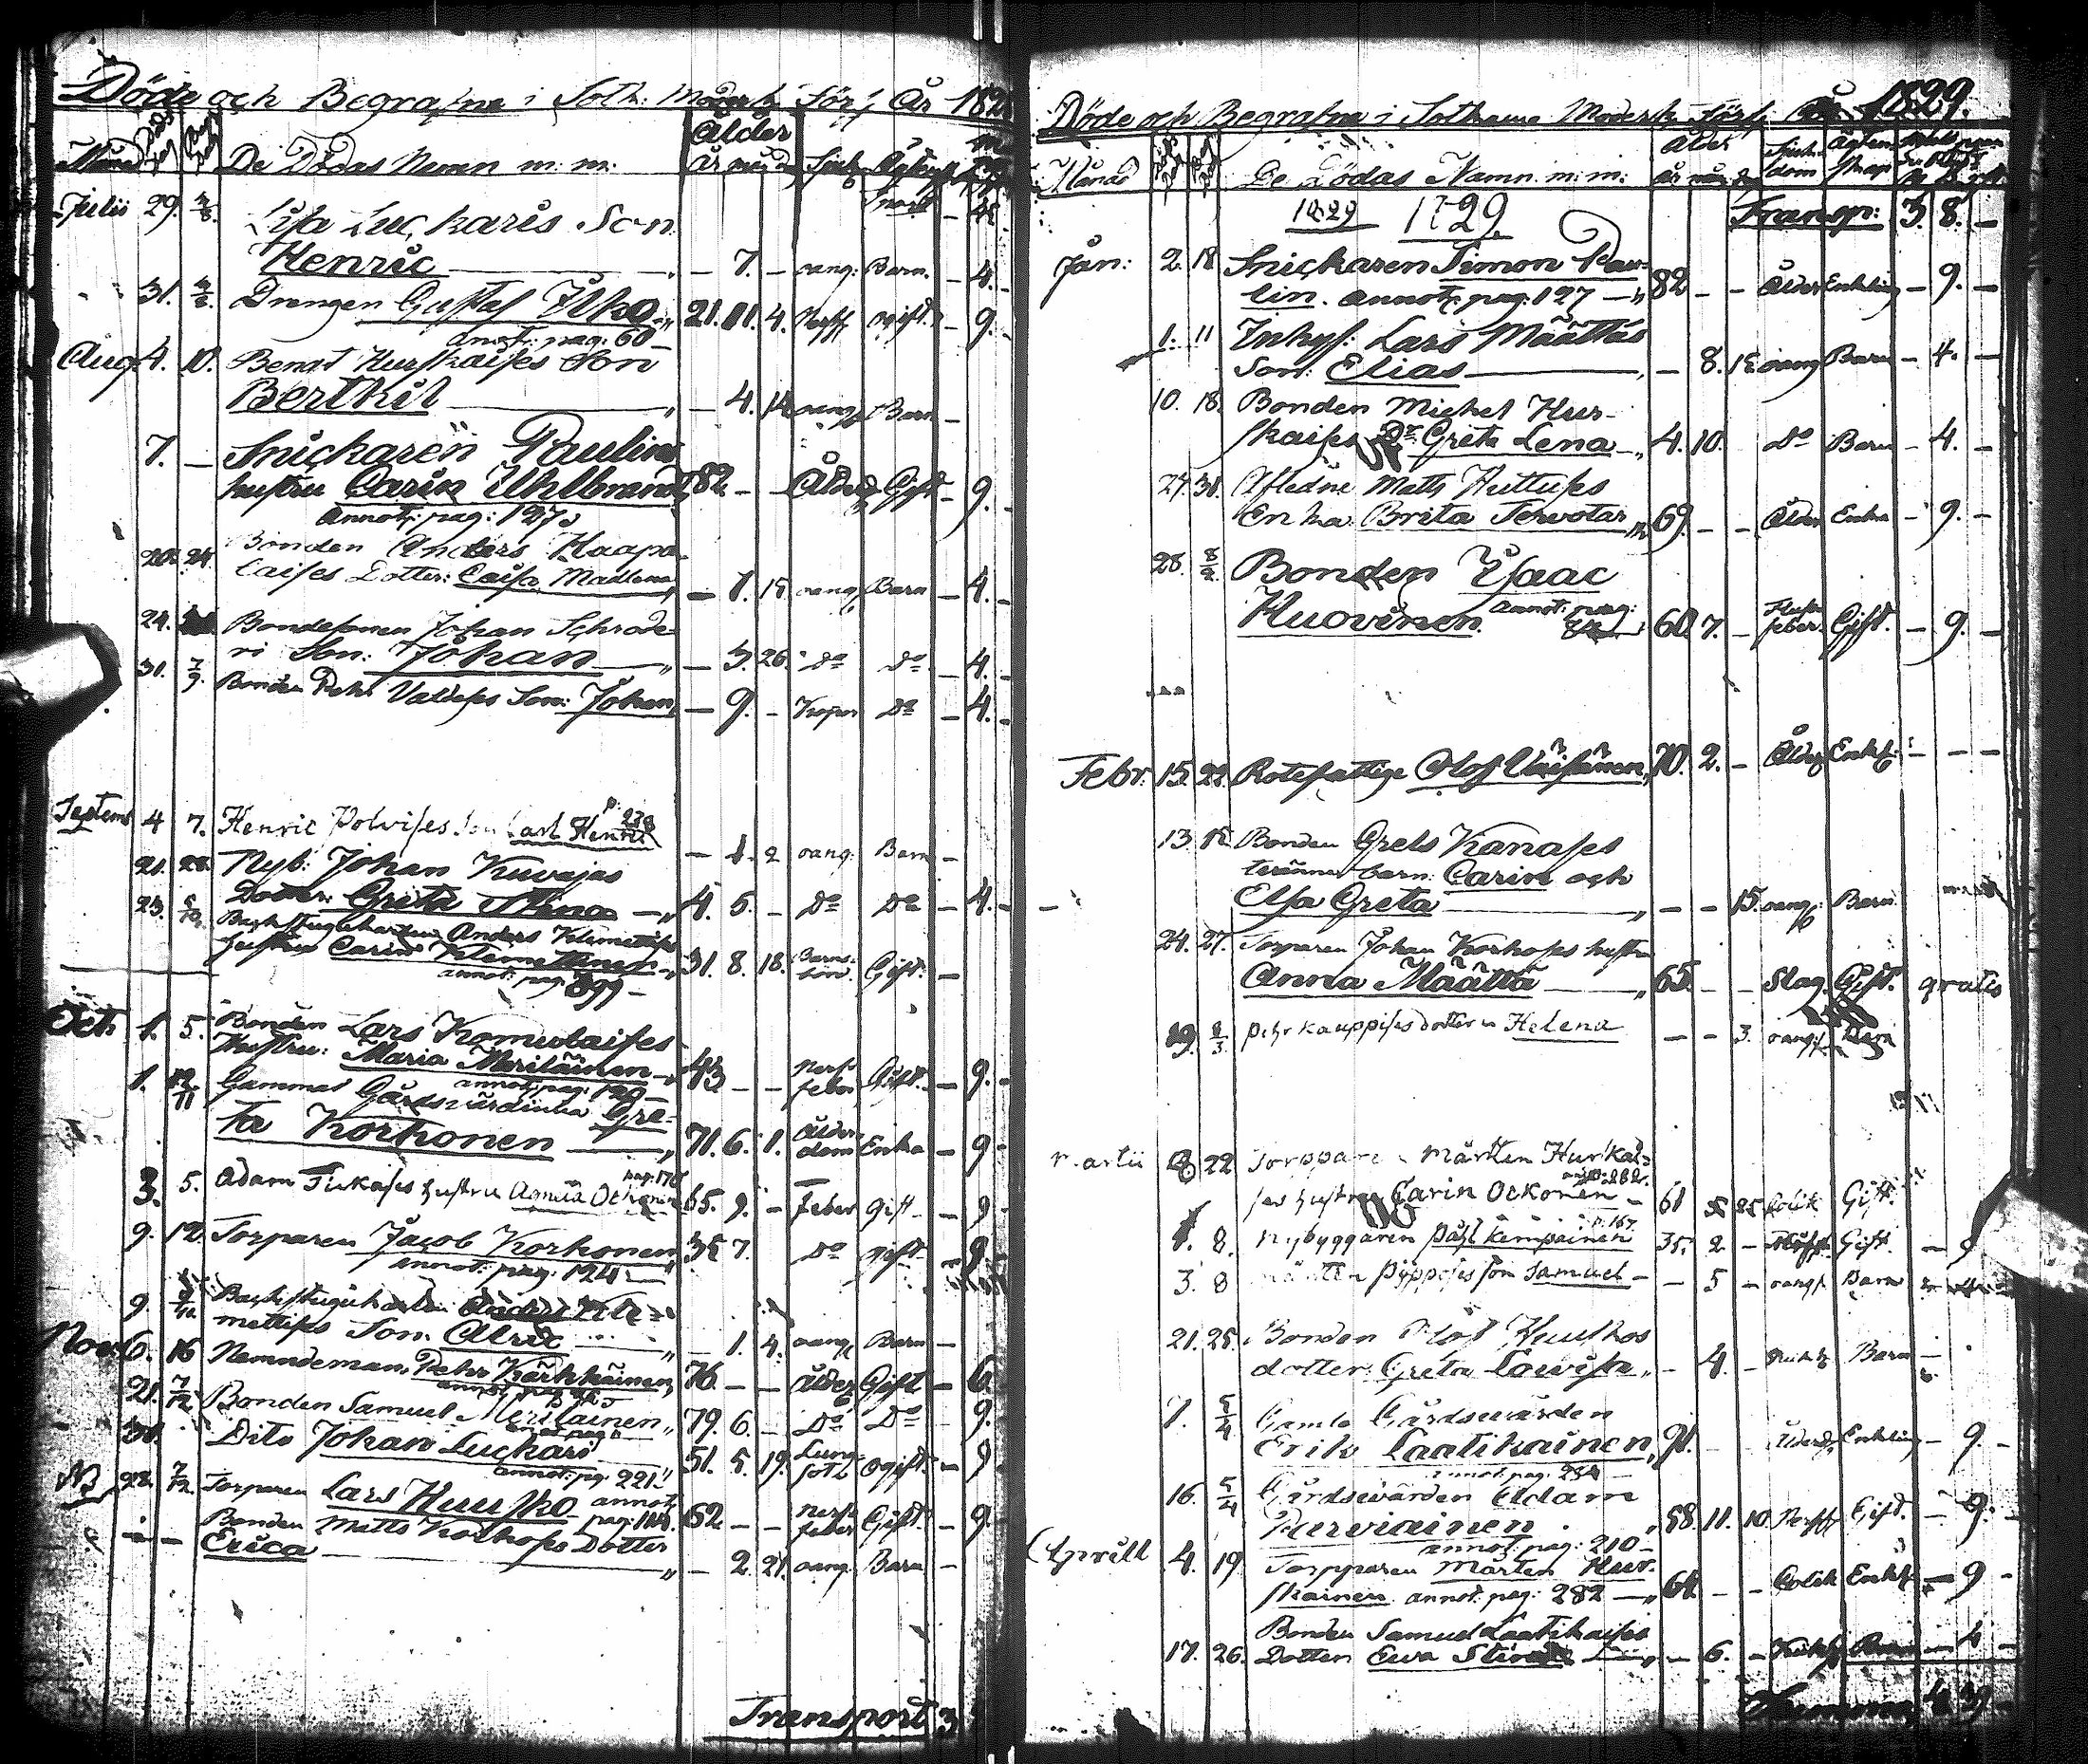 Döde och Begrafne i Soth: Moderk Förs: År 182
Månad De Dödas Namn m:m: Ålder
år mån d Sjukd
Julii 29. 4/8. Lisa Luckaris Son
Henric — 7. — oang: Barn. — 4.
31. Drengen Gustaf Ilko 21. 11. 4. Nerff ogift. 9.
annot: pag: 60
Aug. 4. 10. Bengt Hurskaises Son
Berthil — 4. 14 oang Barn —
7. — Snickaren Paulins
hustru Carin Uhlbrand 82 — — Ålder Gift — 9.
Annot: pag: 127
20. 24. Bonden Anders Haapa-
laises Dotter: Caisa Madlena — 1. 15. oang Barn — 4.
24. Bondesonen Johan Schrode-
ri Son: Johan — 3. 26. Do Do — 4.
31. 7/9. Bonden Pehr Valdeses Son: Johan — 9. — Kopor Do — 4.
Septemb 4 7. Henric Polvises Son Carl Henric p: 238 — 1. 2 oang: Barn —
21. 28. Nyb: Johan Kuvajas
Dotter: Greta Stina 4. 5. — Do Do — 4.
23. 5/10. Backstuguhartun Anders Klemettises
hustru Carin Klemettinen 31. 8. 18. Barns: Gift: —
annot: pag: 399
Oct: 1. 5. Bonden Lars Komulaises
Hustru: Maria Meriläinen 43 — — Nerf feber Gift. — 9.
annot: pag: 120
1. Gammal Gårdsvärdinna Gre-
ta Korhonen 71. 6. 1. Ålder- dom Enka — 9
3. 5. Adam Tickases hustru Agneta Ockonen pag: 170 65. 9. — feber gift — 9
9. 12. Torparen Jacob Korhonen 35 7. Do gift. — 9.
annot: pag: 124
9. Backstuguhartun Anders Kle-
mettises Son: Ulric — 1. 4. oang Barn —
Nov: 6. 16 Nemndeman: Pehr Kärkkäinen 76 — — ålder Gift — 6.
21. 7/12. Bonden Samuel Meriläinen 79. 6. — Do Do — 9.
30. Dito Johan Luckari 51. 5. 19. Lung- sot ogift. — 9
annot: pag. 221.
NB 28. 7/12. Torparen Lars Huusko annot: pag: 62 — — Nerf feber Gift. — 9.
Bonden Matts Korhoses Dotter
Erica — 2. 21. oang. Barn —
Transport 3
Döde och Begrafne i Sothamo Moderk Förs: År 1829.
Månad De Dödas Namn m:m: Ålder
år mån Siuk- dom Ägten- skap
1829 1829. Transp: 3. 8. —
Jan: 2. 18 Snickaren Simon Pau-
lin. annot: pag: 127 82 — — Ålder Enkling — 9. —
1. 11 Inhys: Lars Määttäs
Son: Elias — 8. 12 oang Barn — 4. —
10. 18. Bonden Michel Hur-
skaises Dr Greta Lena 4. 10. Do Barn — 4. —
24. 31. Aflednе Matts Huttuses
Enka Brita Tervotar 69. — — Ålder Enka — 9. —
28. 8/2. Bonden Isaac
Huovinen. annot: pag: 60 7. — feber. Gift. — 9. —
Febr: 15. 22. Rotefattige Olof Väisänen 70. 2. — Ålder Enkl: — — —
13. Bonden Grels Kanases
barn: Carin och
Elsa Greta — — 15. oang: Barn
24. 27. Torparen Johan Korhoses hustru
Anna Määttä 65. — — Slag. Gift. gratis
19. 8/3. Pehr Kauppises dotter Helena — — 3. oang: Barn
Martii 8 22 Torpparen Mårten Hurskai-
ses hustru Carin Ockonen 61 25 Colik Gift.
1. 8. Nybyggaren Påhl Kemppainen p. 167. 35. 2 — Gift. — 9
3. 8 Mårten Pyppeses son Samuel — 5 — oang. Barn
21. 25. Bonden Olof Huuskos
dotter: Greta Lowisa — 4. — Barn —
1. 5/4 Gamle Gårdsvärden
Erik Laatikainen 91. Ålder Enkling — 9. —
annot: pag: 234
16. 5/4 Gårdsvärden Adam
Kurviainen 58. 11. 10. Nerff Gift. — 9. —
annot: pag: 210
Aprill 4. 19 Torpparen Mårten Hur-
skainen annot: pag: 282 61. — — Colik Enkl: — 9 —
17. 26. Bonden Samuel Laatikaises
Dotter Ewa Stina — 6. — Barn — 4 —
Summa